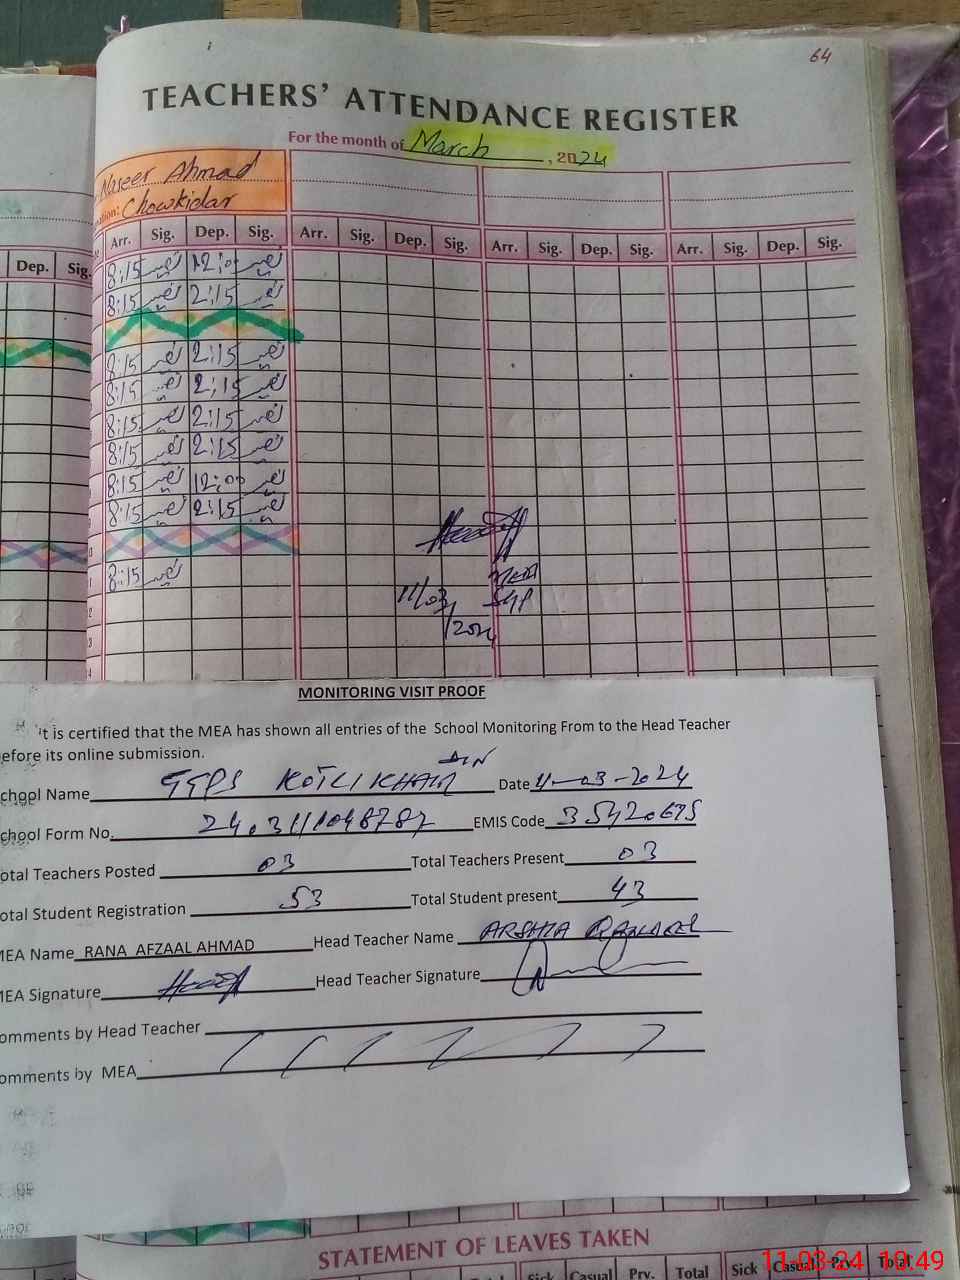 64
TEACHERS' ATTENDANCE REGISTER
For the month of March, 2024
Naseer Ahmad
nation: Chowkidar
Dep. Sig.
Arr. Sig. Dep. Sig. Arr. Sig. Dep. Sig. Arr. Sig. Dep. Sig. Arr. Sig. Dep. Sig.
8:15 نصیر 12:00 نصیر
8:15 نصیر 2:15 نصیر
8:15 نصیر 2:15 نصیر
8:15 نصیر 2:15 نصیر
8:15 نصیر 2:15 نصیر
8:15 نصیر 2:15 نصیر
8:15 نصیر 12:00 نصیر
8:15 نصیر 2:15 نصیر
8:15 نصیر
MEA
11/03/2024
MONITORING VISIT PROOF
't is certified that the MEA has shown all entries of the School Monitoring From to the Head Teacher
efore its online submission.
chool Name GGPS KOTLI KHAM DIN Date 11-03-2024
chool Form No. 2403111048787 EMIS Code 35420675
otal Teachers Posted 03 Total Teachers Present 03
otal Student Registration 53 Total Student present 43
MEA Name RANA AFZAAL AHMAD Head Teacher Name ARSHIA
MEA Signature Head Teacher Signature
omments by Head Teacher
omments by MEA
STATEMENT OF LEAVES TAKEN
Total Sick Casual Prv. Total Sick Casual Prv. Total
11-03-24 10:49